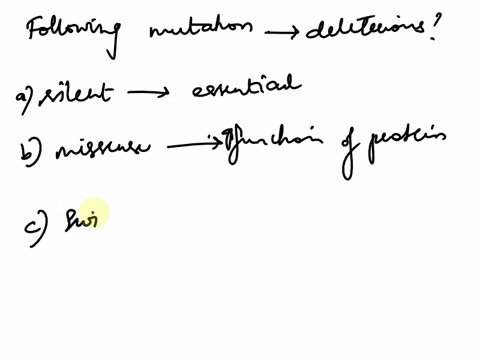 Following mutation → deleterious?
a) silent → essential
b) missense → ↑function of protein
c)Swi